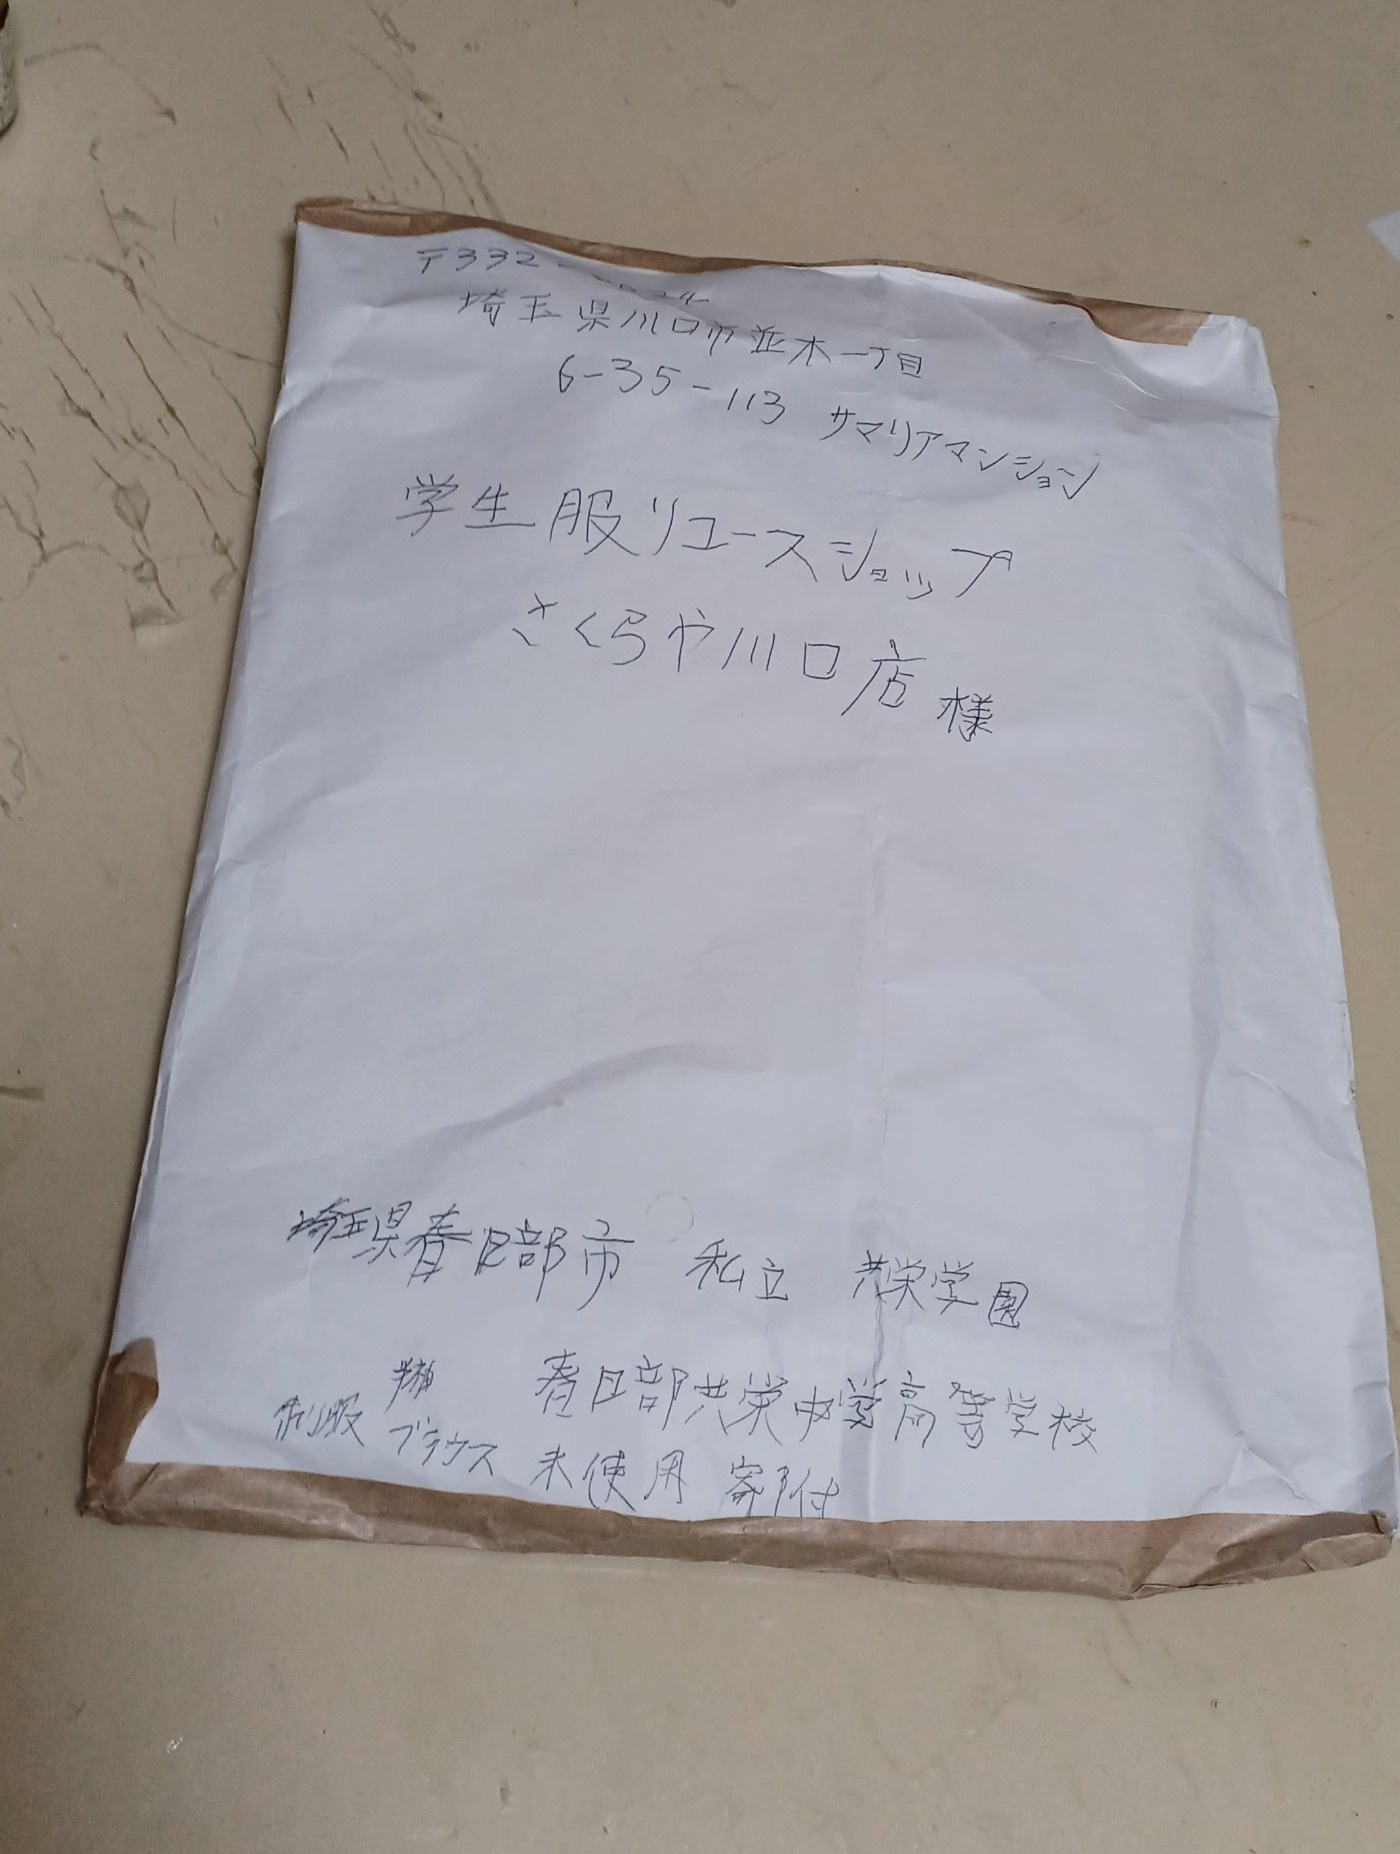 〒332-
埼玉県川口市並木一丁目
6-35-113 サマリアマンション
学生服リユースショップ
さくらや川口店 様
埼玉県春日部市 私立 共栄学園
春日部共栄中学高等学校
制服 ブラウス 未使用 寄附